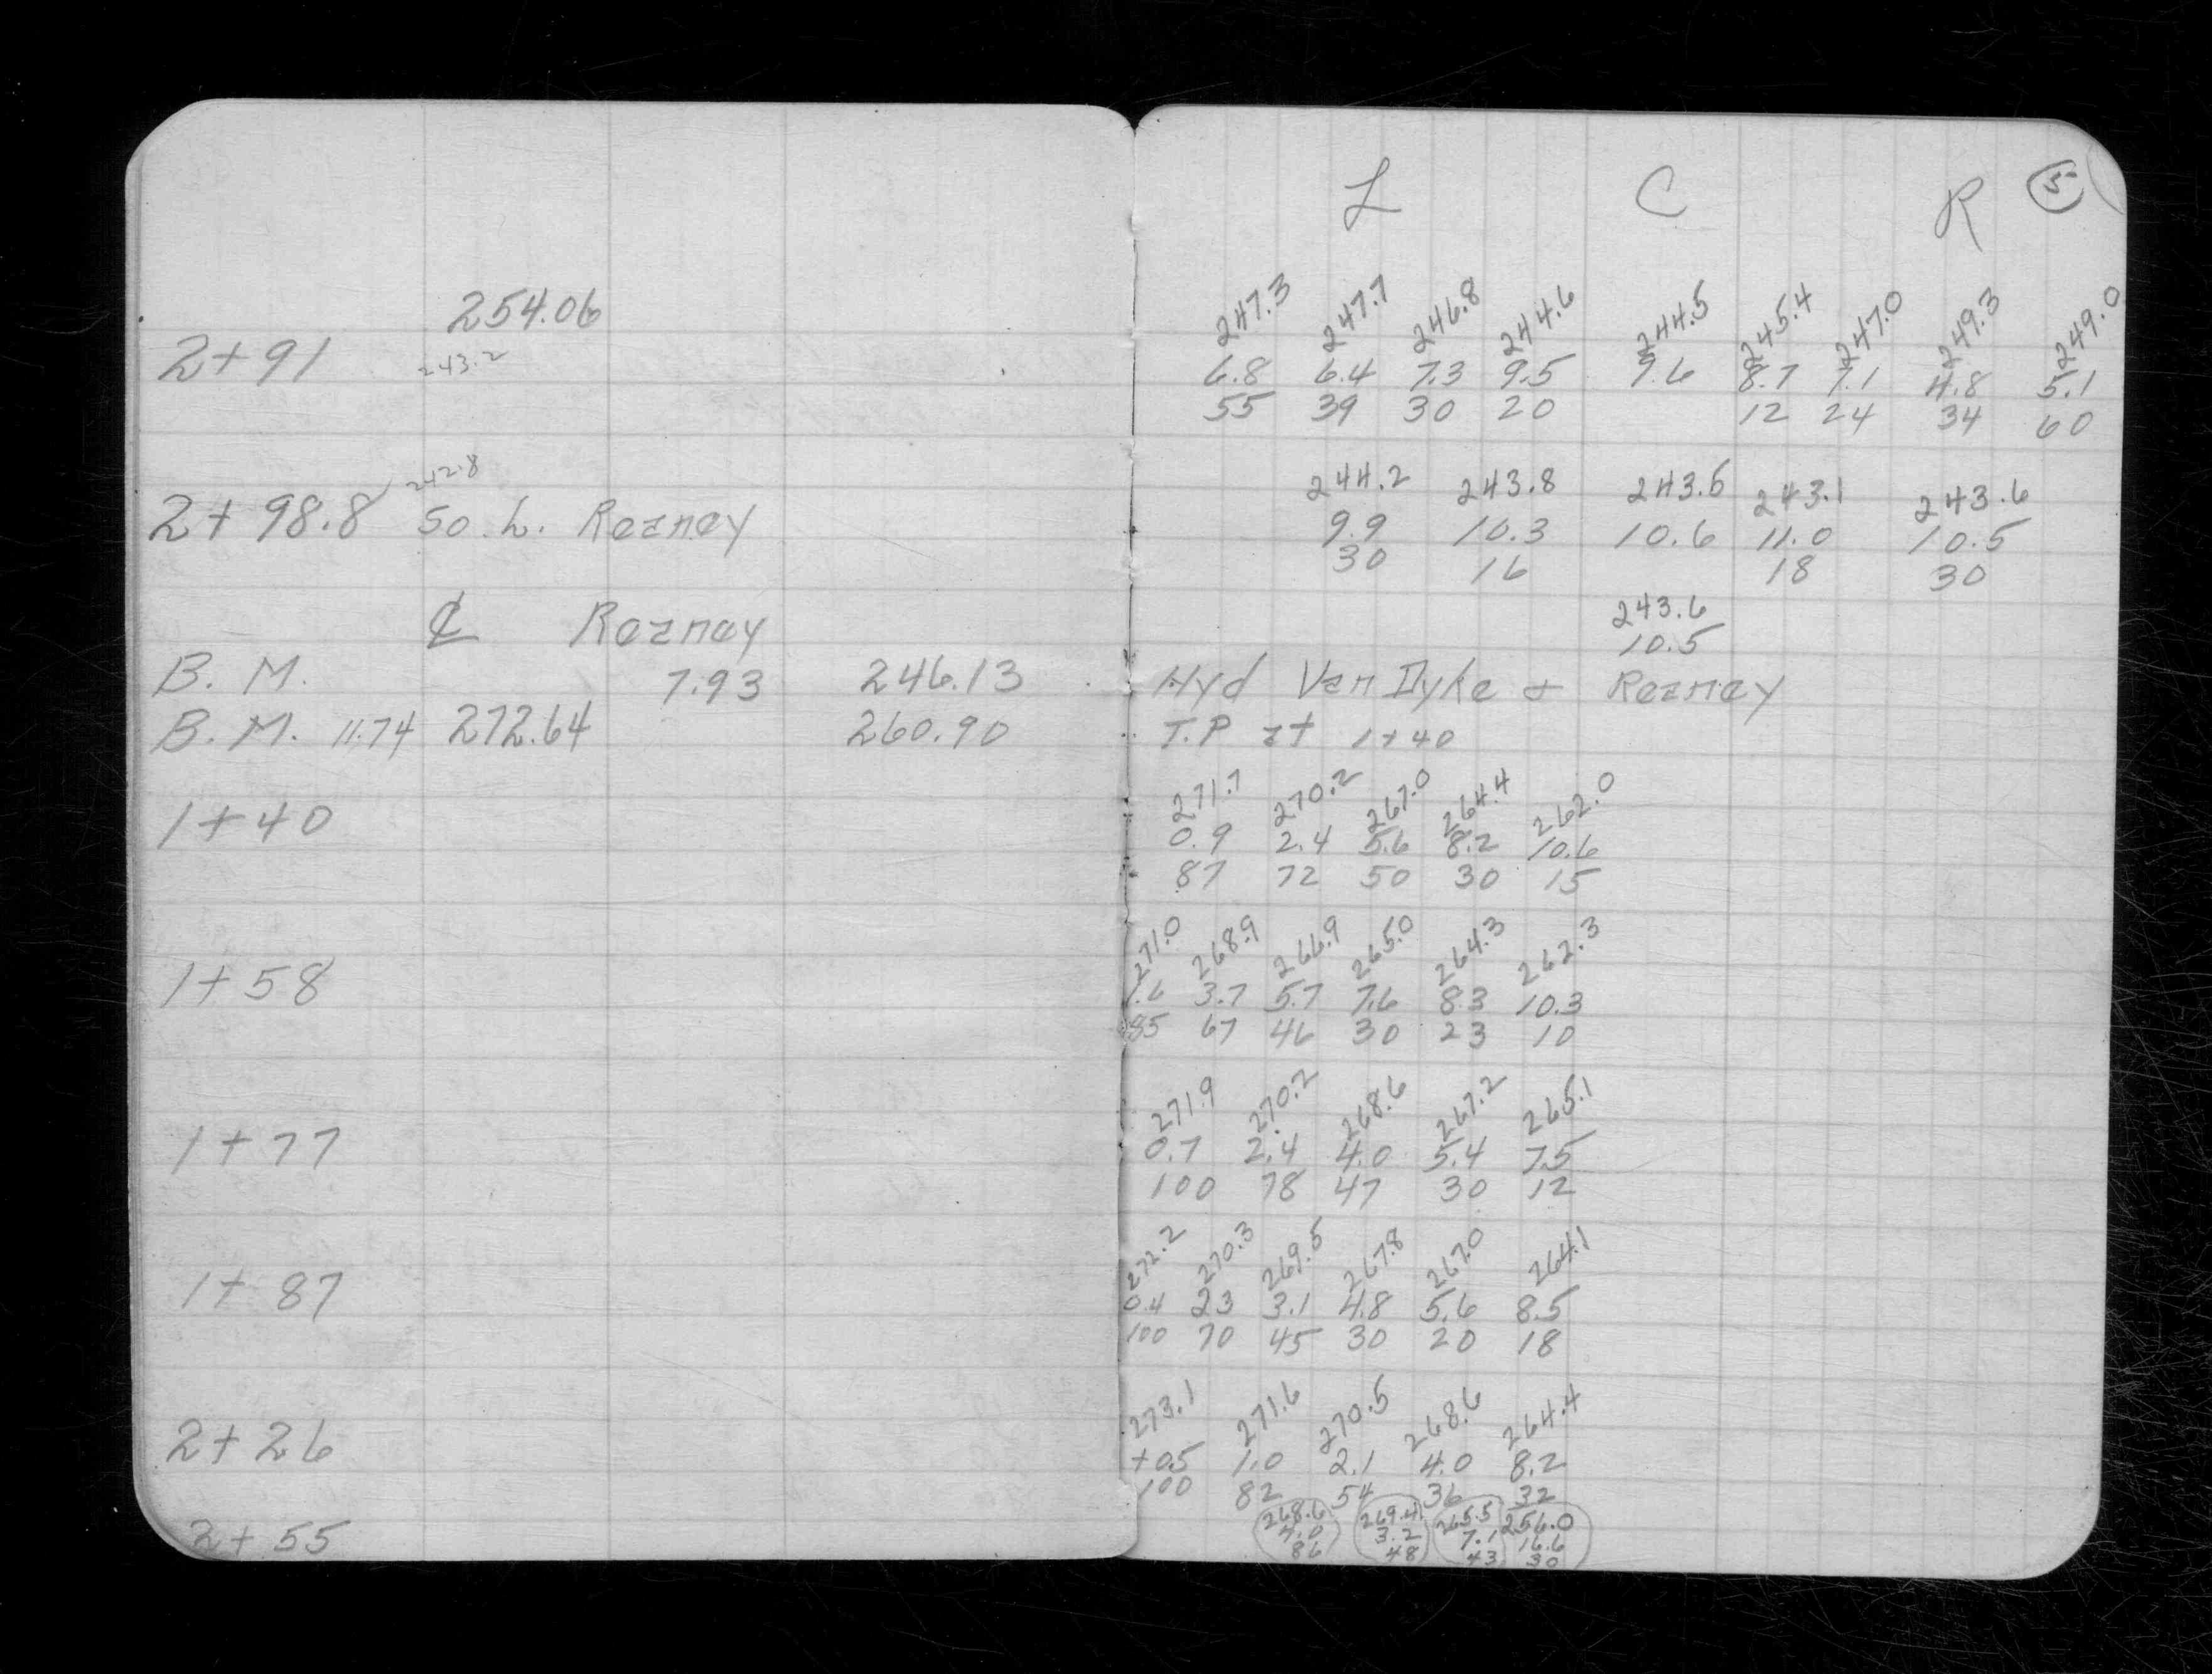 254.06
2+91 243.2
242.8
2+98.8 50 L. Reaney
₵ Reaney
B. M. 7.93 246.13
B. M. 11.74 272.64 260.90
1+40
1+58
1+77
1+87
2+26
2+55
L C R 5
247.3 247.7 246.8 244.6 244.5 245.4 247.0 249.3 249.0
6.8 6.4 7.3 9.5 9.6 8.7 7.1 4.8 5.1
55 39 30 20 12 24 34 60
244.2 243.8 243.5 243.1 243.6
9.9 10.3 10.6 11.0 10.5
30 16 18 30
243.6
10.5
Hyd Van Dyke + Reaney
T.P at 1+40
271.7 270.2 267.0 264.4 262.0
0.9 2.4 5.6 8.2 10.6
87 72 50 30 15
271.0 268.9 266.9 265.0 264.3 262.3
1.6 3.7 5.7 7.6 8.3 10.3
85 67 46 30 23 10
271.9 270.2 268.6 267.2 265.1
0.7 2.4 4.0 5.4 7.5
100 78 47 30 12
272.2 270.3 269.5 267.8 267.0 264.1
0.4 23 3.1 4.8 5.6 8.5
100 70 45 30 20 18
273.1 271.6 270.5 268.6 264.4
+05 1.0 2.1 4.0 8.2
100 82 54 36 32
268.6 269.4 265.5 256.0
4.0 3.2 7.1 16.6
86 48 43 30